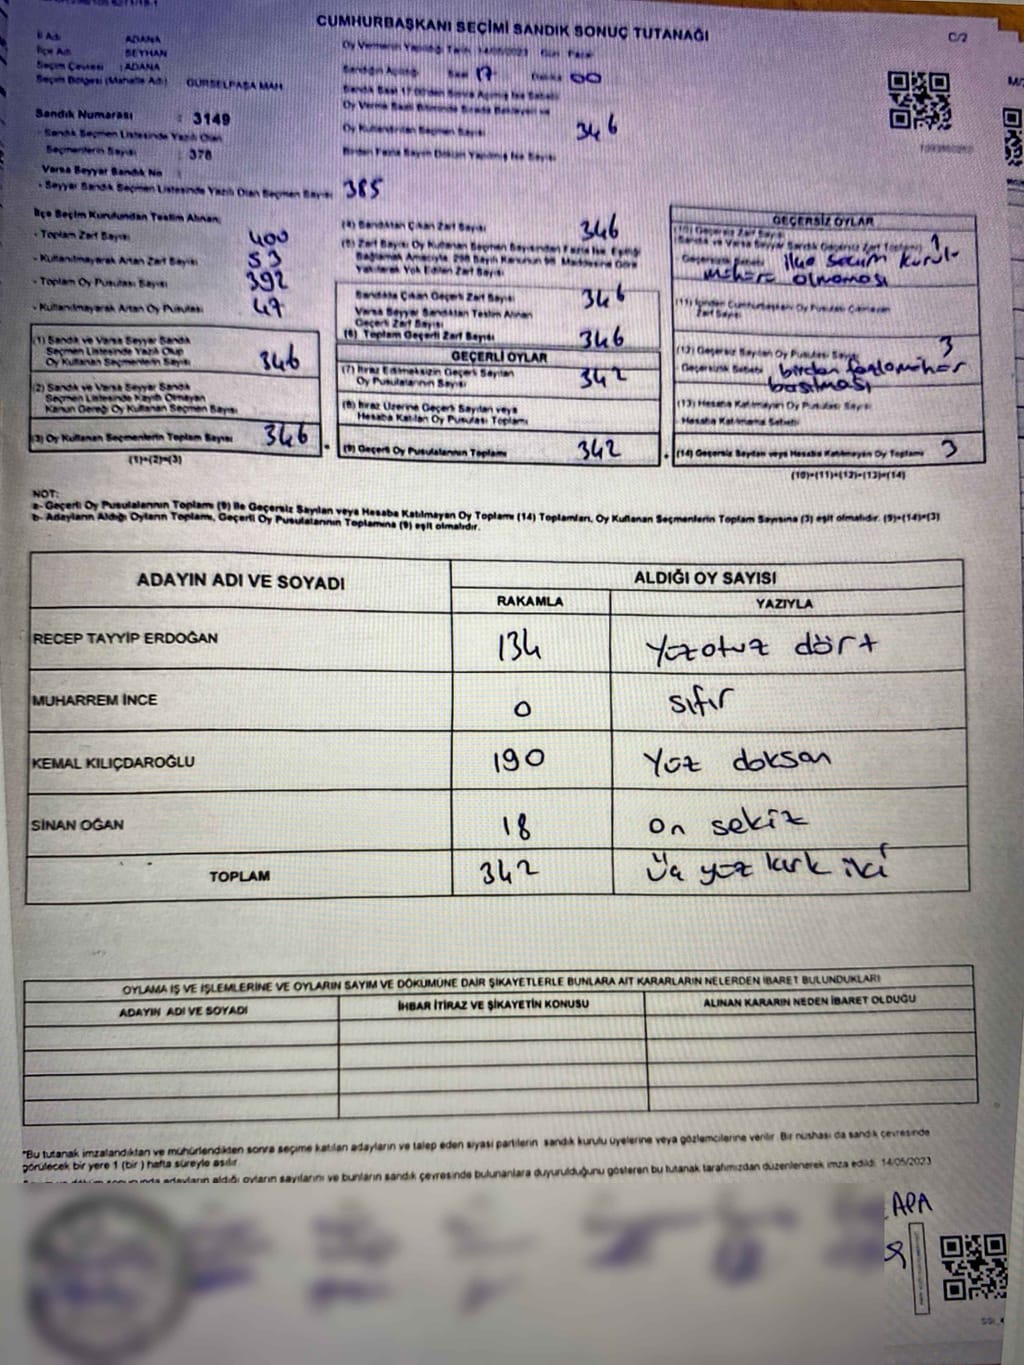 CUMHURBAŞKANI SEÇİMİ SANDIK SONUÇ TUTANAĞI
C/2
İl Adı : ADANA
İlçe Adı : SEYHAN
Seçim Çevresi : ADANA
Seçim Bölgesi (Mahalle Adı) : GÜRSELPAŞA MAH
Oy Vermenin Yapıldığı Tarih 14/05/2023 Gün Pazar
Sandığın Açıldığı Saat 17 Dakika 00
Sandık Numarası : 3149
- Sandık Seçmen Listesinde Yazılı Olan
Seçmenlerin Sayısı : 378
Varsa Seyyar Sandık No :
- Seyyar Sandık Seçmen Listesinde Yazılı Olan Seçmen Sayısı 385
Oy Kullandırılan Seçmen Sayısı 346
Birden Fazla Sayım Döküm Yapılmış İse Sayısı
İlçe Seçim Kurulundan Teslim Alınan;
- Toplam Zarf Sayısı 400
- Kullanılmayarak Artan Zarf Sayısı 53
- Toplam Oy Pusulası Sayısı 392
- Kullanılmayarak Artan Oy Pusulası 47
(1) Sandık ve Varsa Seyyar Sandık
Seçmen Listesinde Yazılı Olup
Oy Kullanan Seçmenlerin Sayısı 346
(2) Sandık ve Varsa Seyyar Sandık
Seçmen Listesinde Kayıtlı Olmayan
Kanun Gereği Oy Kullanan Seçmen Sayısı
(3) Oy Kullanan Seçmenlerin Toplam Sayısı 346
(1)+(2)=(3)
(4) Sandıktan Çıkan Zarf Sayısı 346
(5) Zarf Sayısı Oy Kullanan Seçmen Sayısından Fazla İse, Eşitliği
Sağlamak Amacıyla 298 Sayılı Kanunun 98. Maddesine Göre
Yakılarak Yok Edilen Zarf Sayısı
Sandıkta Çıkan Geçerli Zarf Sayısı 346
Varsa Seyyar Sandıktan Teslim Alınan
Geçerli Zarf Sayısı
(6) Toplam Geçerli Zarf Sayısı 346
GEÇERLİ OYLAR
(7) İtiraz Edilmeksizin Geçerli Sayılan
Oy Pusulalarının Sayısı 342
(8) İtiraz Üzerine Geçerli Sayılan veya
Hesaba Katılan Oy Pusulası Toplamı
(9) Geçerli Oy Pusulalarının Toplamı 342
GEÇERSİZ OYLAR
(10) Geçersiz Zarf Sayısı
(Sandık ve Varsa Seyyar Sandık Geçersiz Zarf Toplamı) 1
Geçersizlik Sebebi ilçe seçim kurulu
mühürü olmaması
(11) İçinden Cumhurbaşkanı Oy Pusulası Çıkmayan
Zarf Sayısı
(12) Geçersiz Sayılan Oy Pusulası Sayısı 3
Geçersizlik Sebebi birden fazla mühür
basılması
(13) Hesaba Katılmayan Oy Pusulası Sayısı
- Hesaba Katılmama Sebebi
(14) Geçersiz Sayılan veya Hesaba Katılmayan Oy Toplamı 3
(10)+(11)+(12)+(13)=(14)
NOT:
a- Geçerli Oy Pusulalarının Toplamı (9) İle Geçersiz Sayılan veya Hesaba Katılmayan Oy Toplamı (14) Toplamları, Oy Kullanan Seçmenlerin Toplam Sayısına (3) eşit olmalıdır. (9)+(14)=(3)
b- Adayların Aldığı Oyların Toplamı, Geçerli Oy Pusulalarının Toplamına (9) eşit olmalıdır.
ADAYIN ADI VE SOYADI ALDIĞI OY SAYISI
RAKAMLA YAZIYLA
RECEP TAYYİP ERDOĞAN 134 Yüzotuz dört
MUHARREM İNCE 0 sıfır
KEMAL KILIÇDAROĞLU 190 Yüz doksan
SİNAN OĞAN 18 on sekiz
TOPLAM 342 Üç yüz kırk iki
OYLAMA İŞ VE İŞLEMLERİNE VE OYLARIN SAYIM VE DÖKÜMÜNE DAİR ŞİKAYETLERLE BUNLARA AİT KARARLARIN NELERDEN İBARET BULUNDUKLARI
ADAYIN ADI VE SOYADI İHBAR İTİRAZ VE ŞİKAYETİN KONUSU ALINAN KARARIN NEDEN İBARET OLDUĞU
"Bu tutanak imzalandıktan ve mühürlendikten sonra seçime katılan adayların ve talep eden siyasi partilerin sandık kurulu üyelerine veya gözlemcilerine verilir. Bir nüshası da sandık çevresinde
görülecek bir yere 1 (bir) hafta süreyle asılır.
adayların aldığı oyların sayılarını ve bunların sandık çevresinde bulunanlara duyurulduğunu gösteren bu tutanak tarafımızdan düzenlenerek imza edildi. 14/05/2023
APA